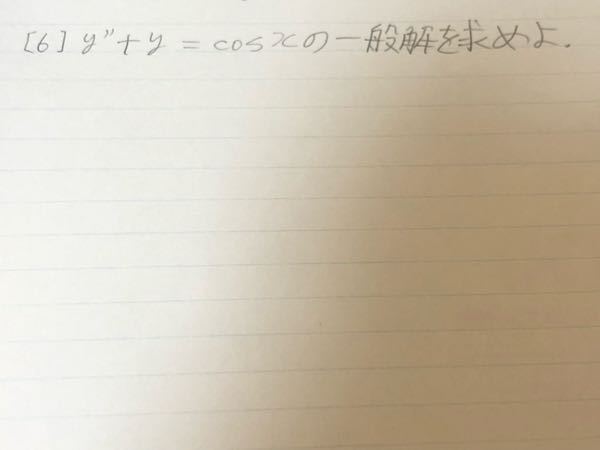 [6] y"+y = cosxの一般解を求めよ.